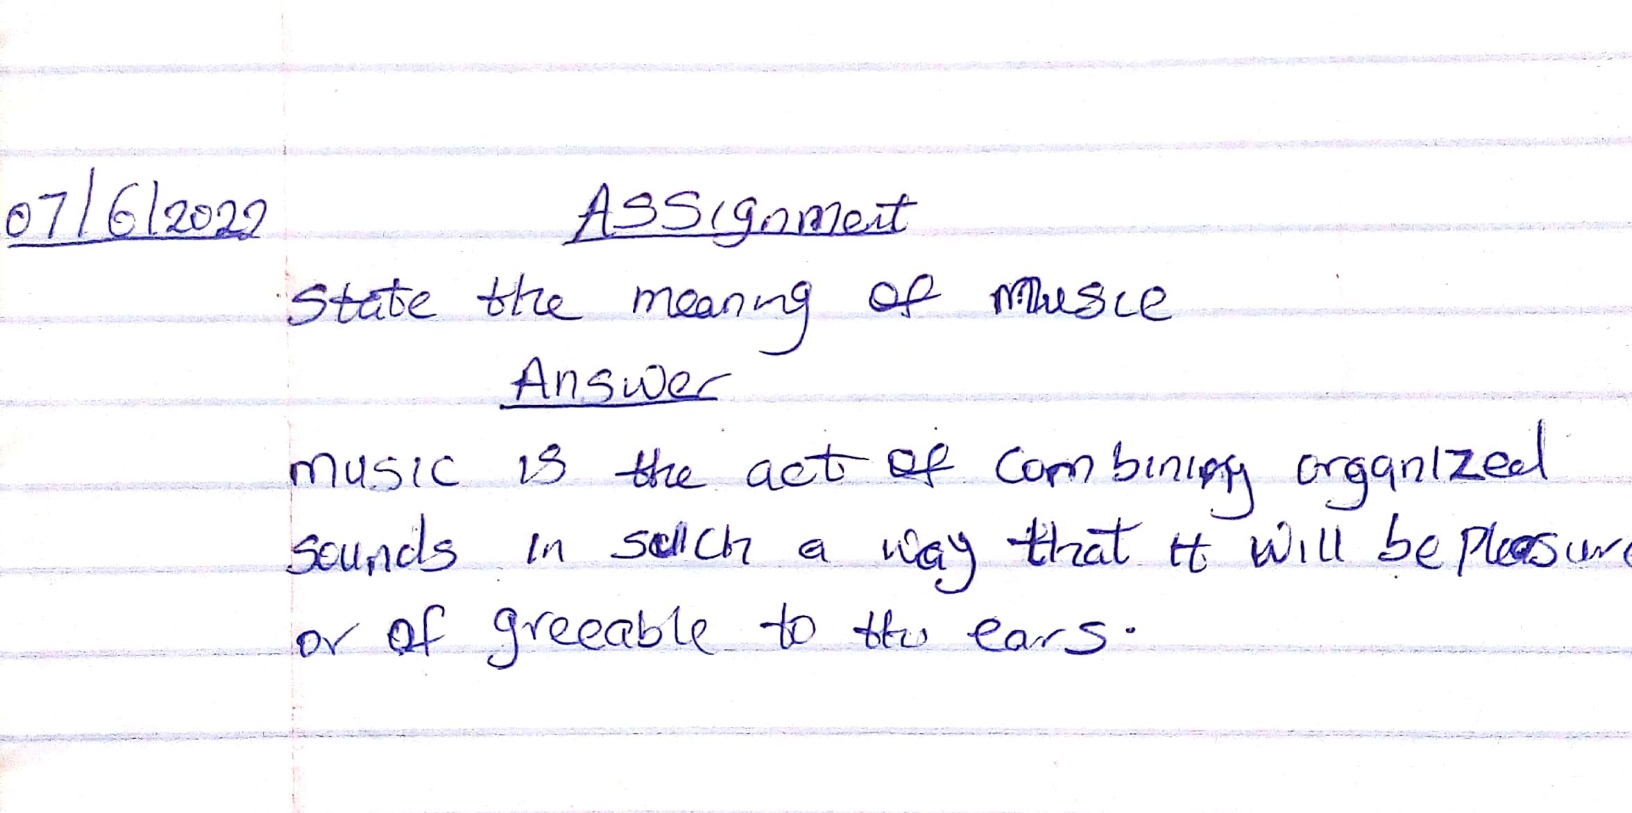 07/6/2022 Assignment
State the meaning of Music
Answer
music is the act of combining organized
sounds in such a way that it will be pleasure
or of greeable to the ears.